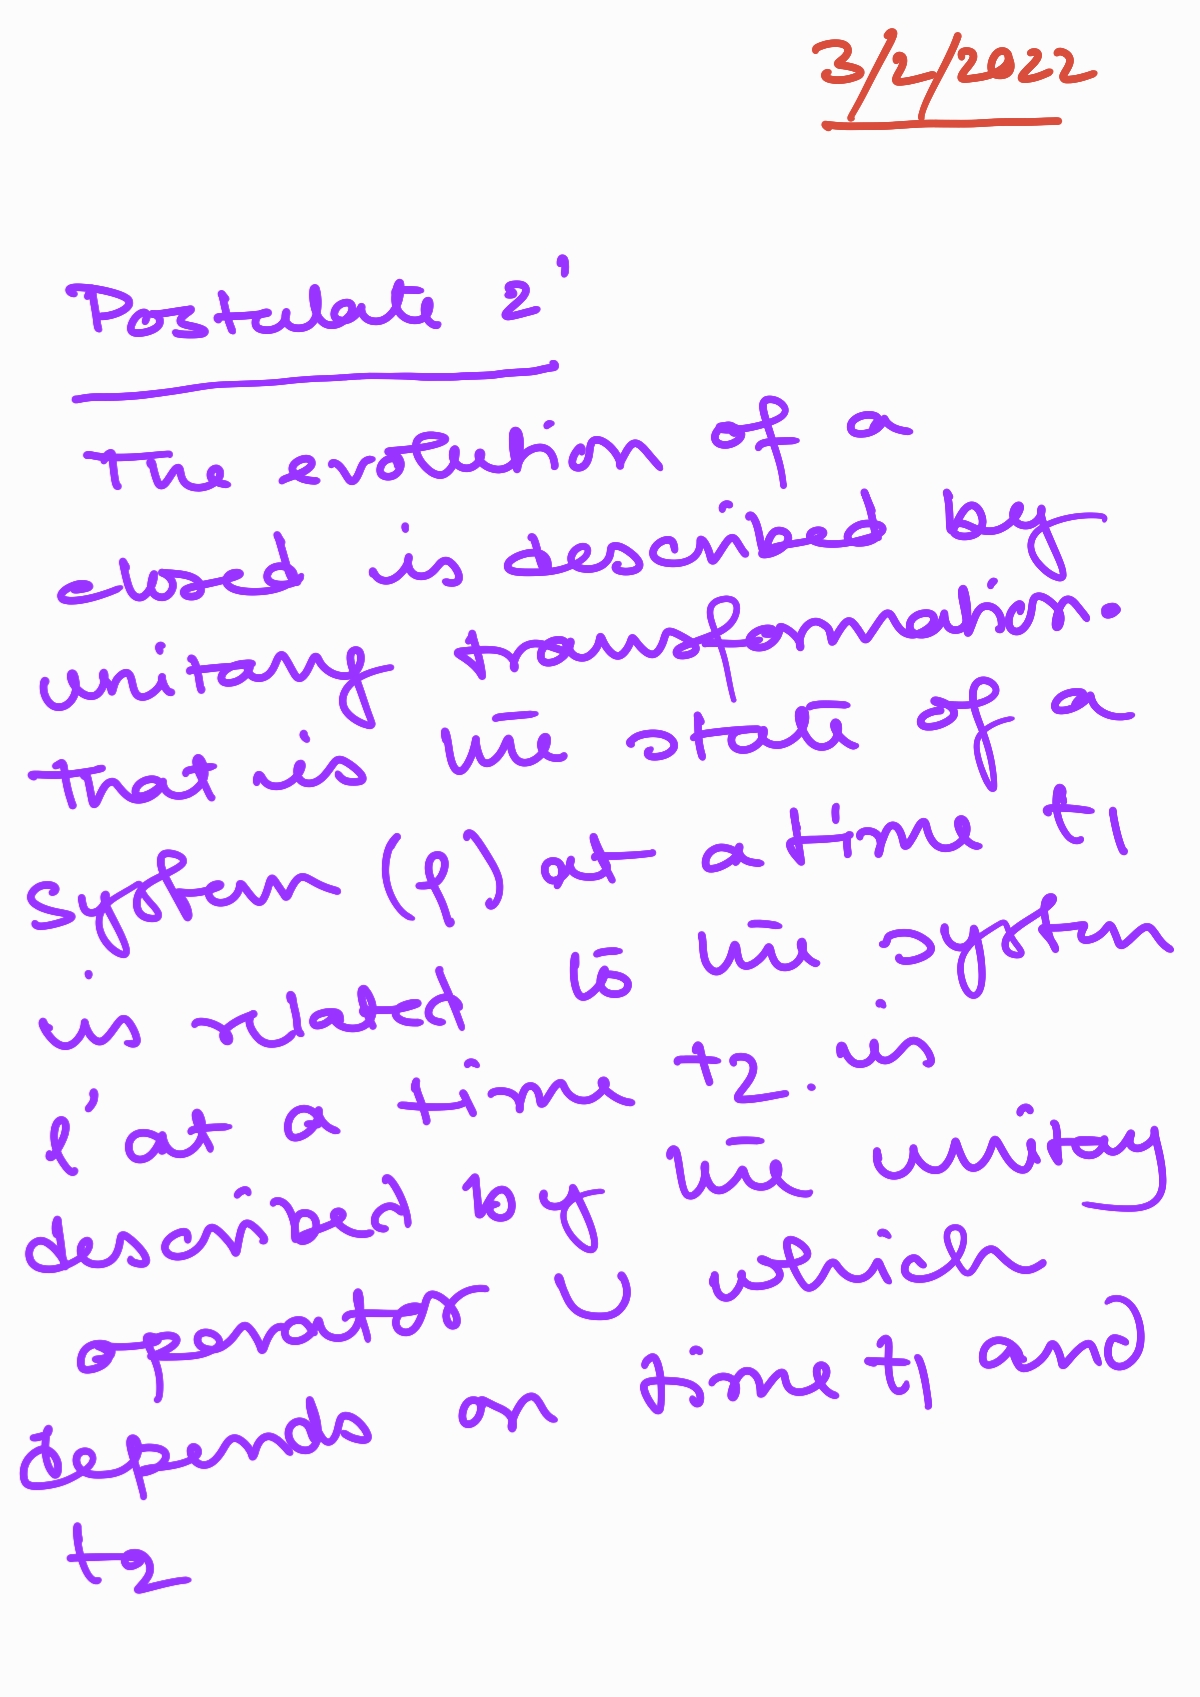 3/2/2022
Postulate 2'
The evolution of a
closed is described by
unitary transformation.
That is the state of a
system (ρ) at a time t1
is related to the system
ρ' at a time t2. is
described by the unitay
operator U which
depends on time t1 and
t2